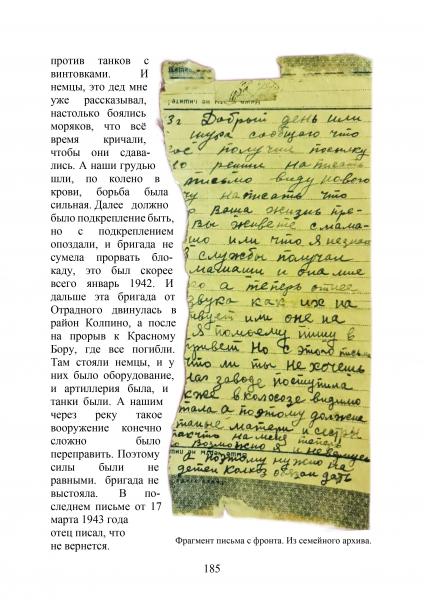 против танков с
винтовками. И
немцы, это дед мне
уже рассказывал,
настолько боялись
моряков, что всё
время кричали,
чтобы они сдава-
лись. А наши грудью
шли, по колено в
крови, борьба была
сильная. Далее должно
было подкрепление быть,
но с подкреплением
опоздали, и бригада не
сумела прорвать бло-
каду, это был скорее
всего январь 1942. И
дальше эта бригада от
Отрадного двинулась в
район Колпино, а после
на прорыв к Красному
Бору, где все погибли.
Там стояли немцы, и у
них было оборудование,
и артиллерия была, и
танки были. А нашим
через реку такое
вооружение конечно
сложно было
переправить. Поэтому
силы были не
равными. бригада не
выстояла. В по-
следнем письме от 17
марта 1943 года
отец писал, что
не вернется.
Добрый день или
шура сообщаю что
получил посылку
решил написать
письмо виду нового
написать что
Ваша жизнь пре-
Вы живете с мама-
или что я незнаю
службы получал
мамаши и она мне
а теперь от нее
звука как их на
или оне на
Я помоему пишу в
привет Но с этого письма
что ли ты не хочешь
на заводе поступила
в колхозе видимо
а поэтому должна
матери и сестры
на меня
возможно я и невернусь
а поэтому нужно на
детей колхоз дать
Фрагмент письма с фронта. Из семейного архива.
185